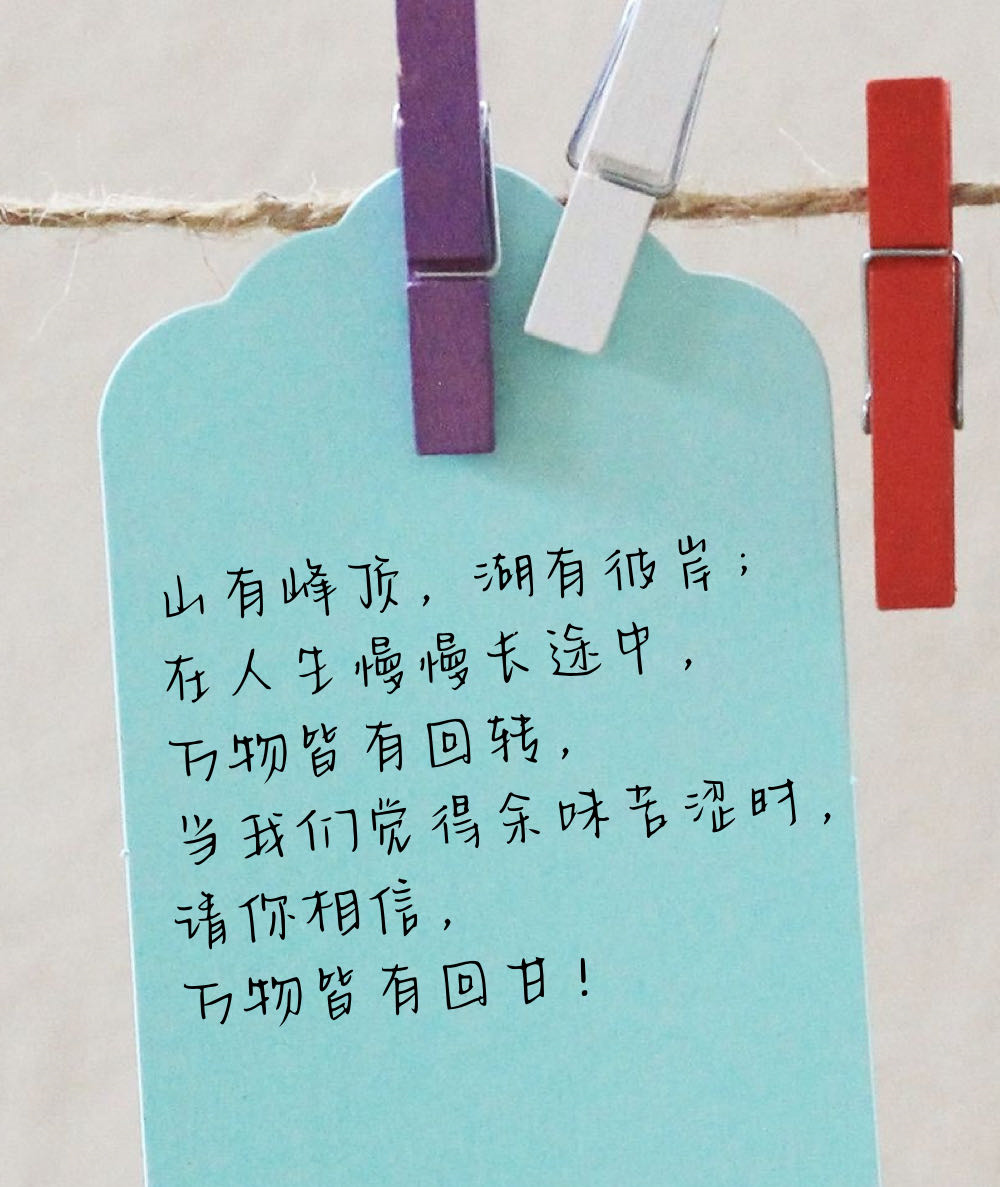 山有峰顶，湖有彼岸；
在人生慢慢长途中，
万物皆有回转，
当我们觉得余味苦涩时，
请你相信，
万物皆有回甘！